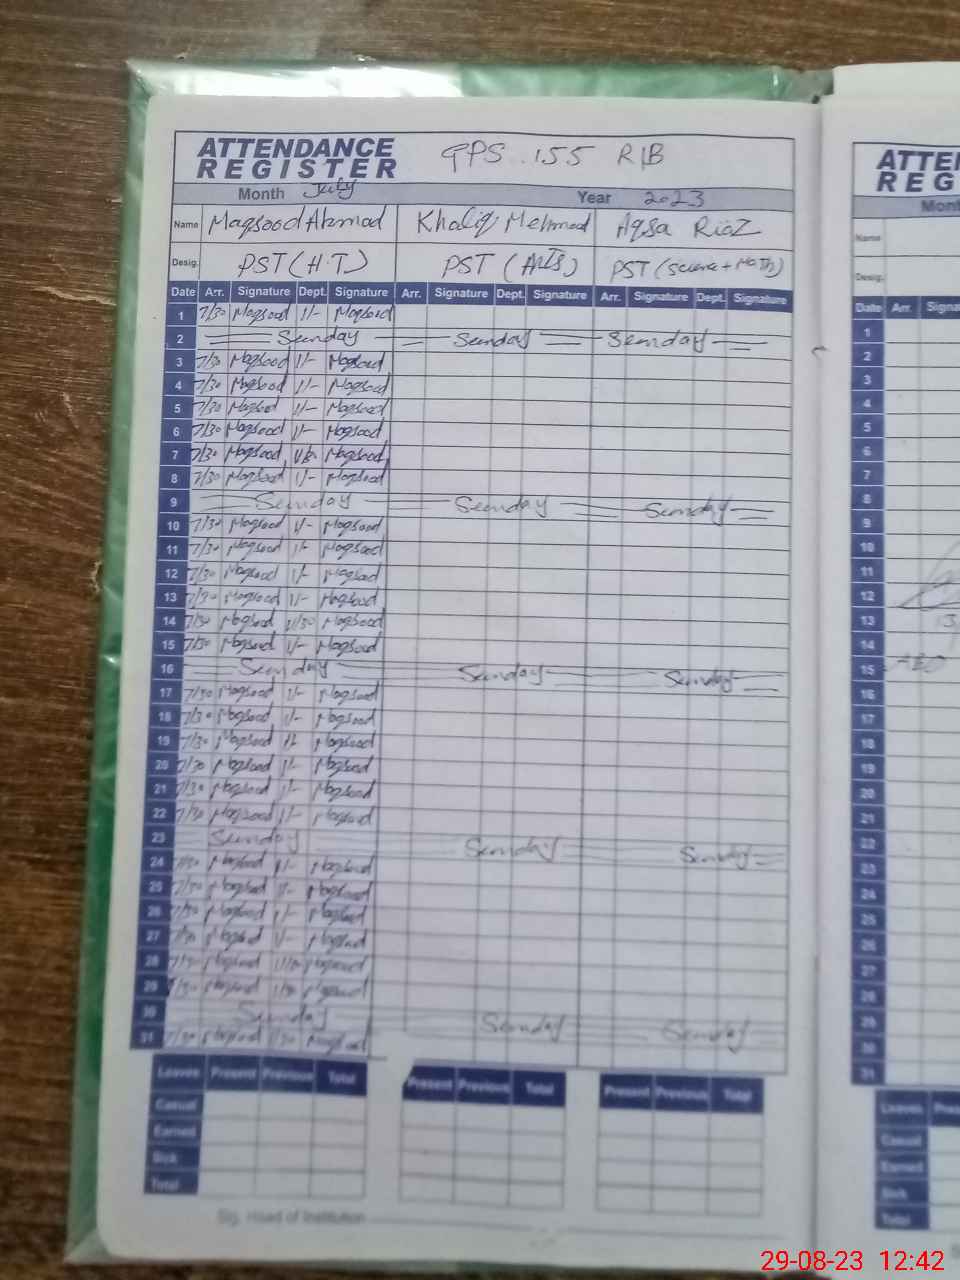 ATTENDANCE REGISTER GPS 155 R/B
Month July Year 2023
Name Maqsood Ahmad Khaliq Mehmood Aqsa Riaz
Desig. PST (H.T) PST (Arts) PST (Science + Math)
Date Arr. Signature Dept. Signature Arr. Signature Dept. Signature Arr. Signature Dept. Signature
1 7/30 Maqsood 1/- Maqsood
2 Sunday Sunday Sunday
3 7/30 Maqsood 1/- Maqsood
4 7/30 Maqsood 1/- Maqsood
5 7/30 Maqsood 1/- Maqsood
6 7/30 Maqsood 1/- Maqsood
7 7/30 Maqsood Maqsood
8 7/30 Maqsood 1/- Maqsood
9 Sunday Sunday Sunday
10 7/30 Maqsood 1/- Maqsood
11 7/30 Maqsood 1/- Maqsood
12 7/30 Maqsood 1/- Maqsood
13 7/30 Maqsood 1/- Maqsood
14 7/30 Maqsood 11/30 Maqsood
15 7/30 Maqsood 1/- Maqsood
16 Sunday Sunday Sunday
17 7/30 Maqsood 1/- Maqsood
18 7/30 Maqsood 1/- Maqsood
19 7/30 Maqsood 1/- Maqsood
20 7/30 Maqsood 1/- Maqsood
21 7/30 Maqsood 1/- Maqsood
22 7/30 Maqsood 1/- Maqsood
23 Sunday Sunday Sunday
24 7/30 Maqsood 1/- Maqsood
25 7/30 Maqsood 1/- Maqsood
26 7/30 Maqsood 1/- Maqsood
27 7/30 Maqsood 1/- Maqsood
28 7/30 Maqsood Maqsood
29 7/30 Maqsood Maqsood
30 Sunday Sunday Sunday
31 7/30 Maqsood Maqsood
Leaves Present Previous Total Present Previous Total Present Previous Total
Casual
Earned
Sick
Total
Sig. Head of Institution
ATTE
REG
Month
Name
Desig.
Date Arr. Signa
1
2
3
4
5
6
7
8
9
10
11
12
13
14
15
16
17
18
19
20
21
22
23
24
25
26
27
28
29
30
31
Leaves Pres
Casual
Earned
Sick
Total
29-08-23 12:42